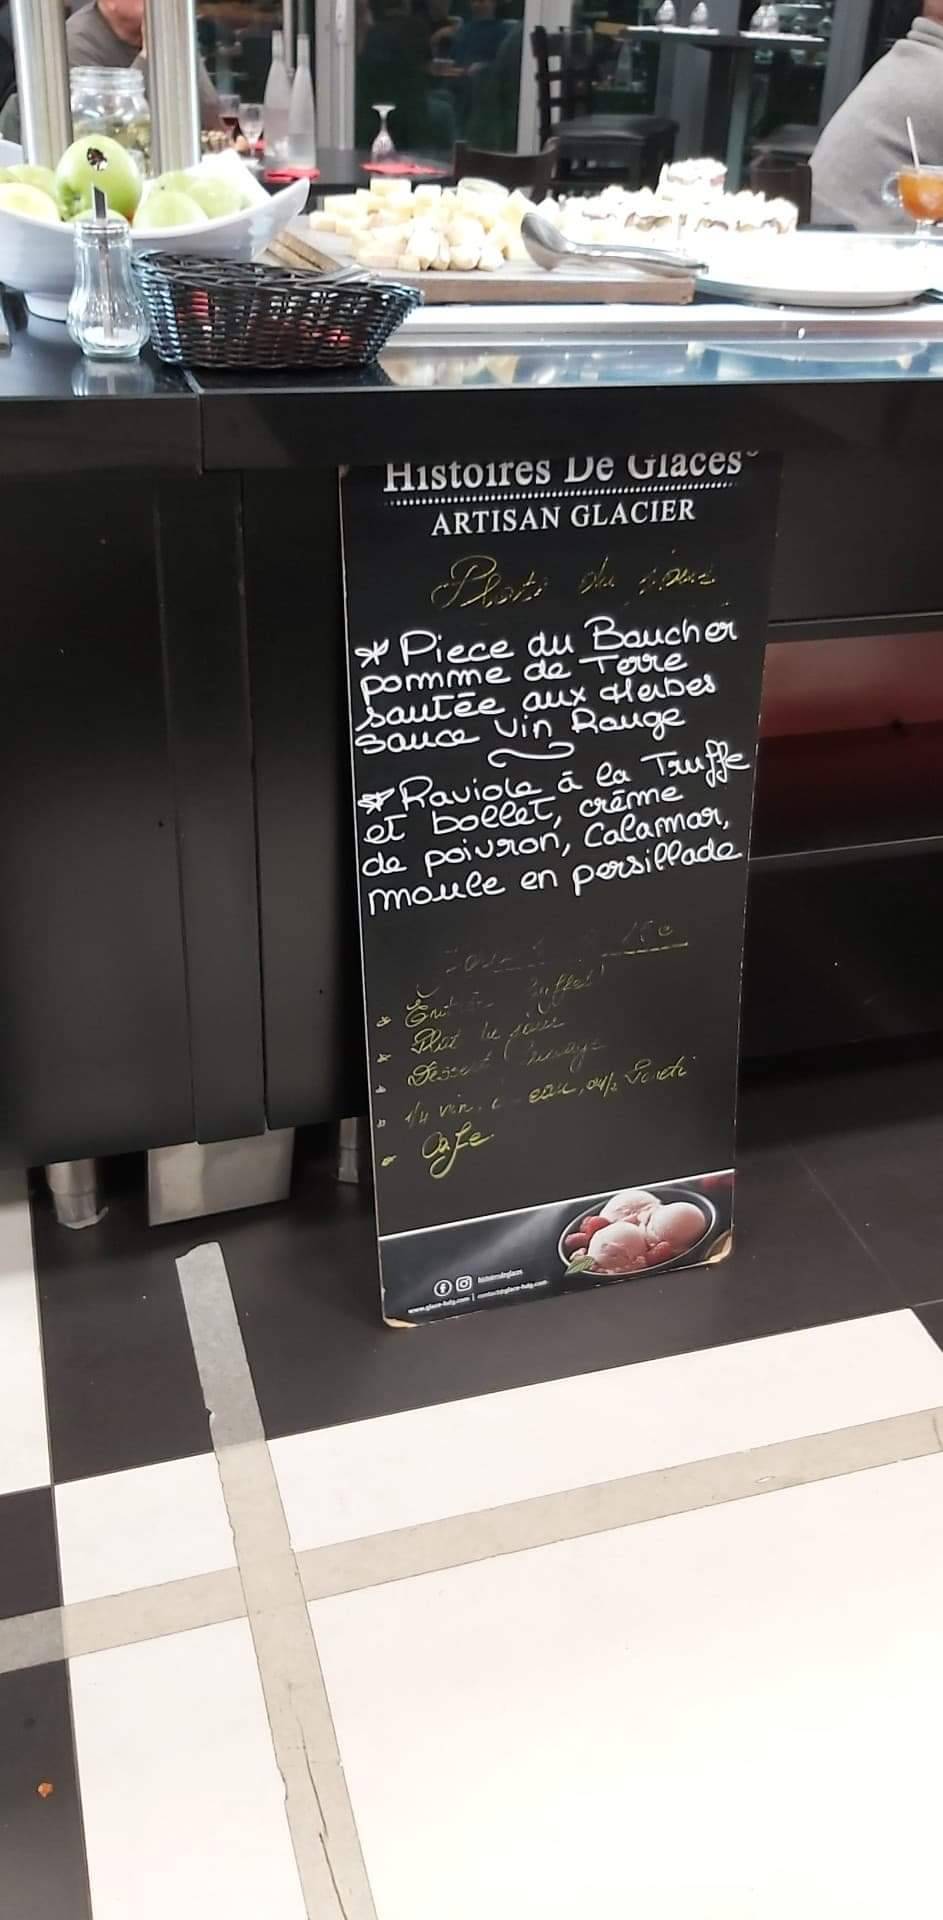 Histoires De Glaces
ARTISAN GLACIER
Plats du jour
* Piece du Boucher
pomme de Terre
sautée aux Herbes
sauce vin Rouge
* Raviole à la Truffe
et bollet, crème
de poivron, Calamar,
moule en persillade
Plat du jour
Dessert
1/4 vin, eau,
Cafe
histoiredeglaces
www.glace-hdg.com | contact@glace-hdg.com